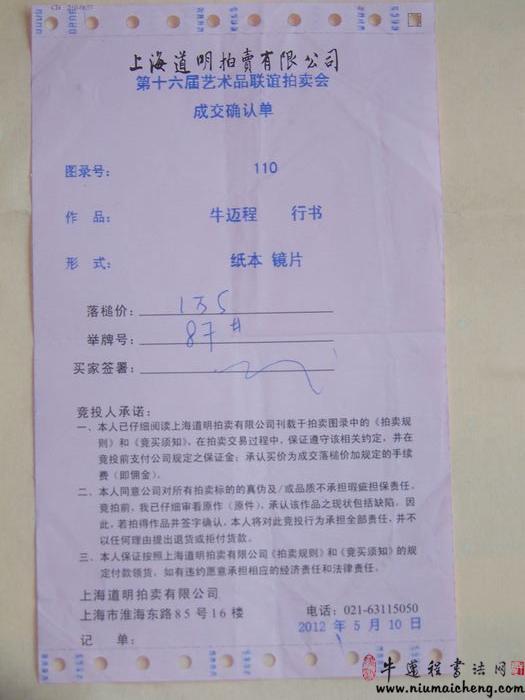 上海道明拍賣有限公司
第十六届艺术品联谊拍卖会
成交确认单
图录号： 110
作 品： 牛迈程 行书
形 式： 纸本 镜片
落槌价： 1万5
举牌号： 87#
买家签署：
竞投人承诺：
一、本人已仔细阅读上海道明拍卖有限公司刊载于拍卖图录中的《拍卖规
则》和《竞买须知》，在拍卖交易过程中，保证遵守该相关约定，并在
竞投前支付公司规定之保证金；承认买价为成交落槌价加规定的手续
费（即佣金）。
二、本人同意公司对所有拍卖标的的真伪及/或品质不承担瑕疵担保责任。
竞拍前，我已仔细审看原作（原件），承认该作品之现状包括缺陷，因
此，若拍得作品并签字确认，本人将对此竞投行为承担全部责任，并不
以任何理由提出退货或拒付货款。
三、本人保证按照上海道明拍卖有限公司《拍卖规则》和《竞买须知》的规
定付款领货，如有违约愿意承担相应的经济责任和法律责任。
上海道明拍卖有限公司
上海市淮海东路85号16楼 电话：021-63115050
记 单： 2012 年 5 月 10 日
牛萬程书法网
www.niumaicheng.com